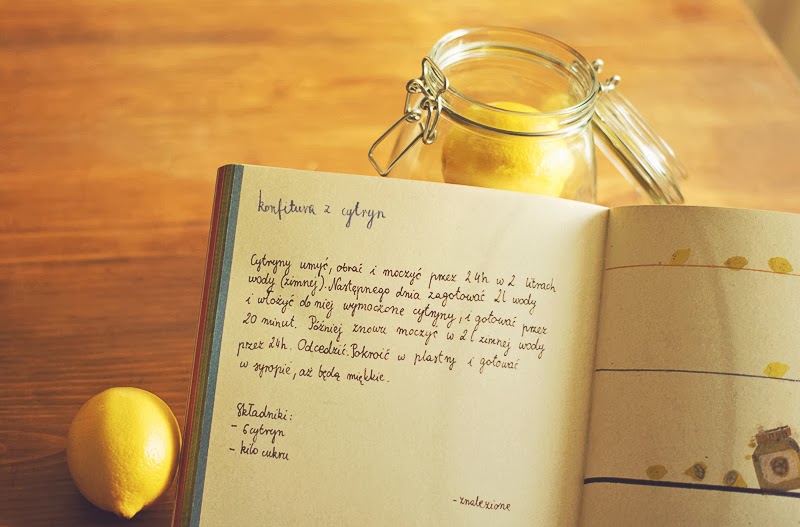 konfitura z cytryn
Cytryny umyć, obrać i moczyć przez 24h w 2 litrach
wody (zimnej). Następnego dnia zagotować 2l wody
i włożyć do niej wymoczone cytryny, i gotować przez
20 minut. Później znowu moczyć w 2l zimnej wody
przez 24h. Odcedzić. Pokroić w plastry i gotować
w syropie, aż będą miękkie.
Składniki:
- 6 cytryn
- kilo cukru
- znalezione